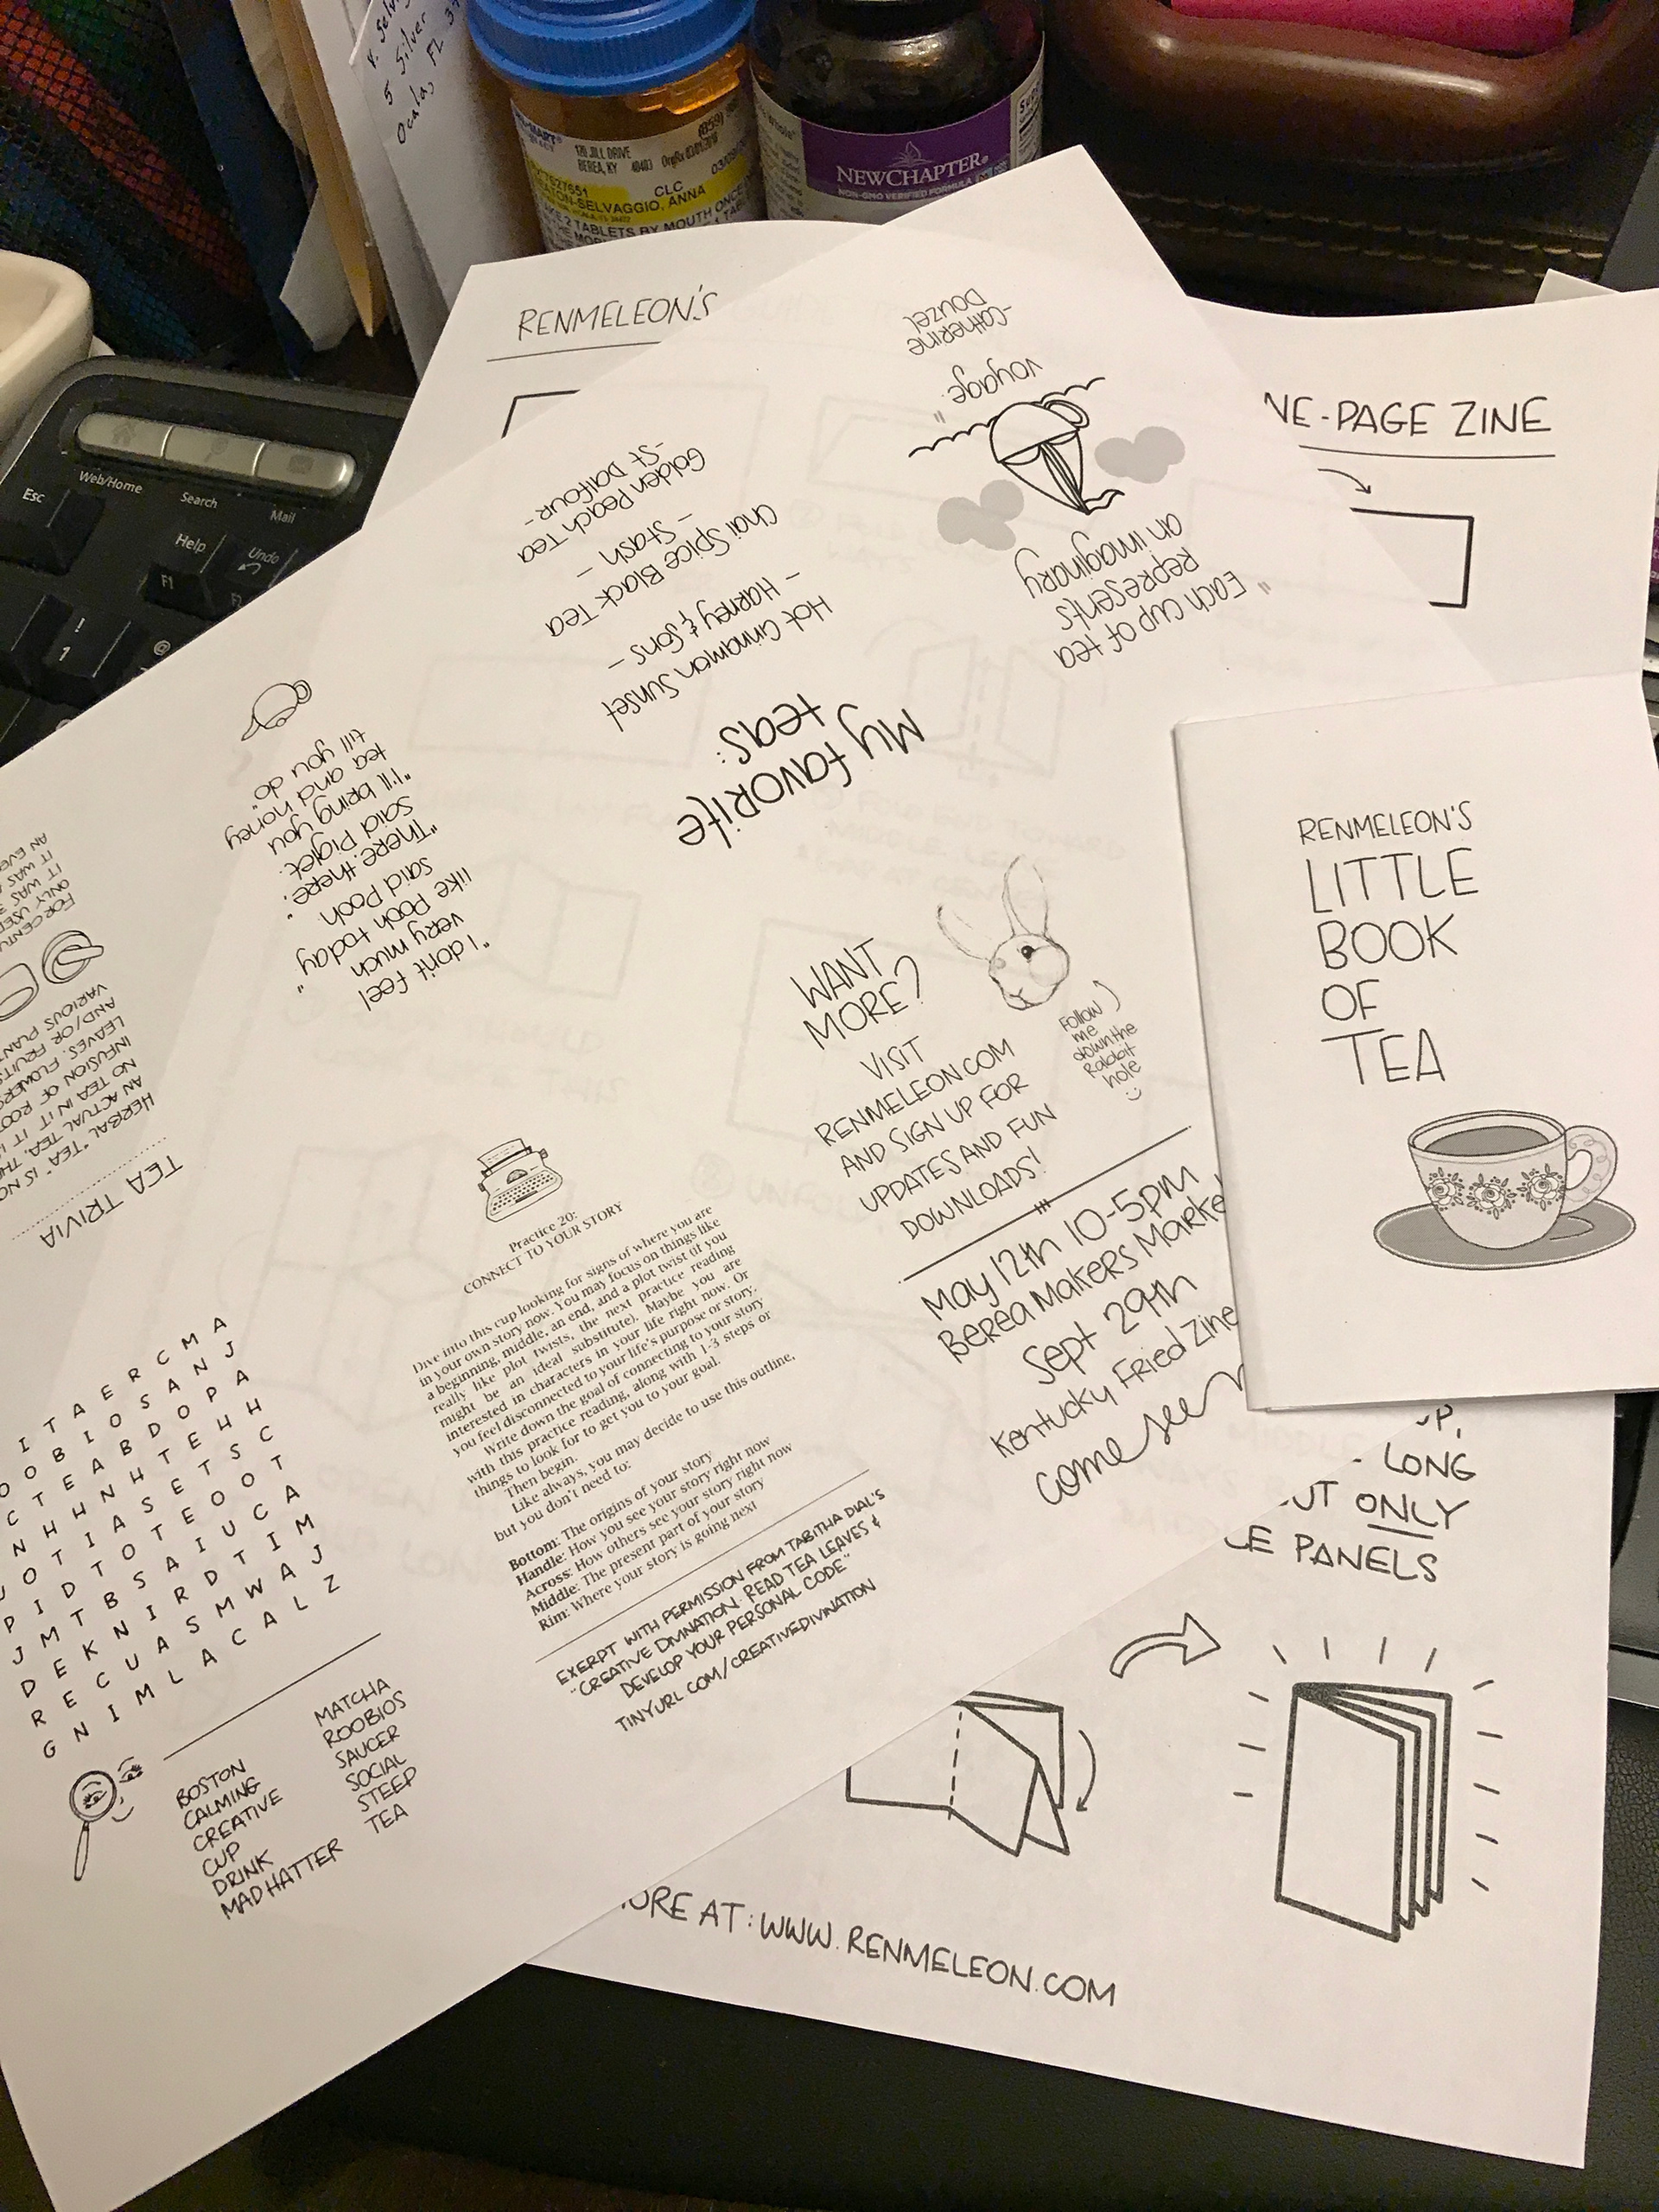 Ocala, FL
120 JILL DRIVE
BEREA, KY 40403
CLC
ATON-SELVAGGIO, ANNA
2 TABLETS BY MOUTH ONCE
NEWCHAPTER®
NON-GMO VERIFIED FORMULA
Esc
Web/Home
Search
Mail
Help
Undo
F1
!
1
@
RENMELEON'S
NE-PAGE ZINE
"Each cup of tea
represents
an imaginary
voyage."
-Catherine
Douzel
My favorite
teas:
Hot Cinnamon Sunset
- Harney & Sons -
Chai Spice Black Tea
- Stash -
Golden Peach Tea
St Dalfour -
"I don't feel
very much
like Pooh today,"
said Pooh.
"There, there,"
said Piglet.
"I'll bring you
tea and honey
till you do."
TEA TRIVIA
HERBAL "TEA" IS NO
AN ACTUAL TEA. THE
NO TEA IN IT. IT I
INFUSION OF ROOT
LEAVES, FLOWERS
AND/OR FRUITS
VARIOUS PLANT
FOR CENTU
ONLY USED
IT WAS
IT WAS
AN EVE
I T A E R C M A
O B I O S A N J
C T E A B D O P A
N H H N H T E H H
U O T I A S E T S C
P I D T O T E O O T
J M T B S A I U C A
D E K N I R D T I M
R E C U A S M W A J
G N I M L A C A L Z
BOSTON
CALMING
CREATIVE
CUP
DRINK
MAD HATTER
MATCHA
ROOBIOS
SAUCER
SOCIAL
STEEP
TEA
Practice 20:
CONNECT TO YOUR STORY
Dive into this cup looking for signs of where you are
in your own story now. You may focus on things like
a beginning, middle, an end, and a plot twist (if you
really like plot twists, the next practice reading
might be an ideal substitute). Maybe you are
interested in characters in your life right now. Or
you feel disconnected to your life's purpose or story.
Write down the goal of connecting to your story
with this practice reading, along with 1-3 steps or
things to look for to get you to your goal.
Then begin.
Like always, you may decide to use this outline,
but you don't need to:
Bottom: The origins of your story
Handle: How you see your story right now
Across: How others see your story right now
Middle: The present part of your story
Rim: Where your story is going next
EXERPT WITH PERMISSION FROM TABITHA DIAL'S
"CREATIVE DIVINATION: READ TEA LEAVES &
DEVELOP YOUR PERSONAL CODE"
TINYURL.COM/CREATIVEDIVINATION
WANT
MORE?
VISIT
RENMELEON.COM
AND SIGN UP FOR
UPDATES AND FUN
DOWNLOADS!
Follow
me
down the
Rabbit
hole
:)
May 12th 10-5pm
Berea Makers Marke
Sept 29th
Kentucky Fried Zine
come see
RENMELEON'S
LITTLE
BOOK
OF
TEA
UP.
- LONG
UT ONLY
LE PANELS
ORE AT: WWW.RENMELEON.COM